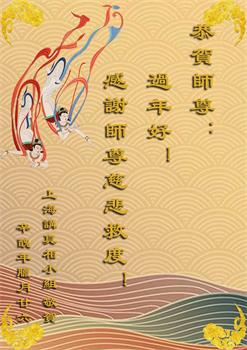 恭賀師尊：
過年好！
感謝師尊慈悲救度！
上海講真相小組敬賀
辛醜年臘月廿六